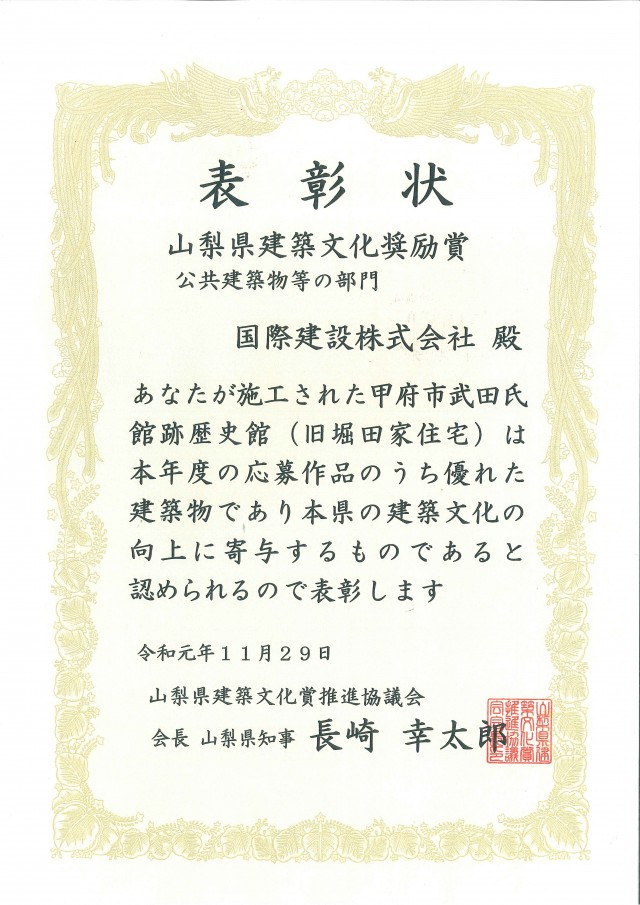 表彰状
山梨県建築文化奨励賞
公共建築物等の部門
国際建設株式会社 殿
あなたが施工された甲府市武田氏
館跡歴史館（旧堀田家住宅）は
本年度の応募作品のうち優れた
建築物であり本県の建築文化の
向上に寄与するものであると
認められるので表彰します
令和元年１１月２９日
山梨県建築文化賞推進協議会
会長 山梨県知事 長崎 幸太郎
山梨県建
築文化賞
推進協議